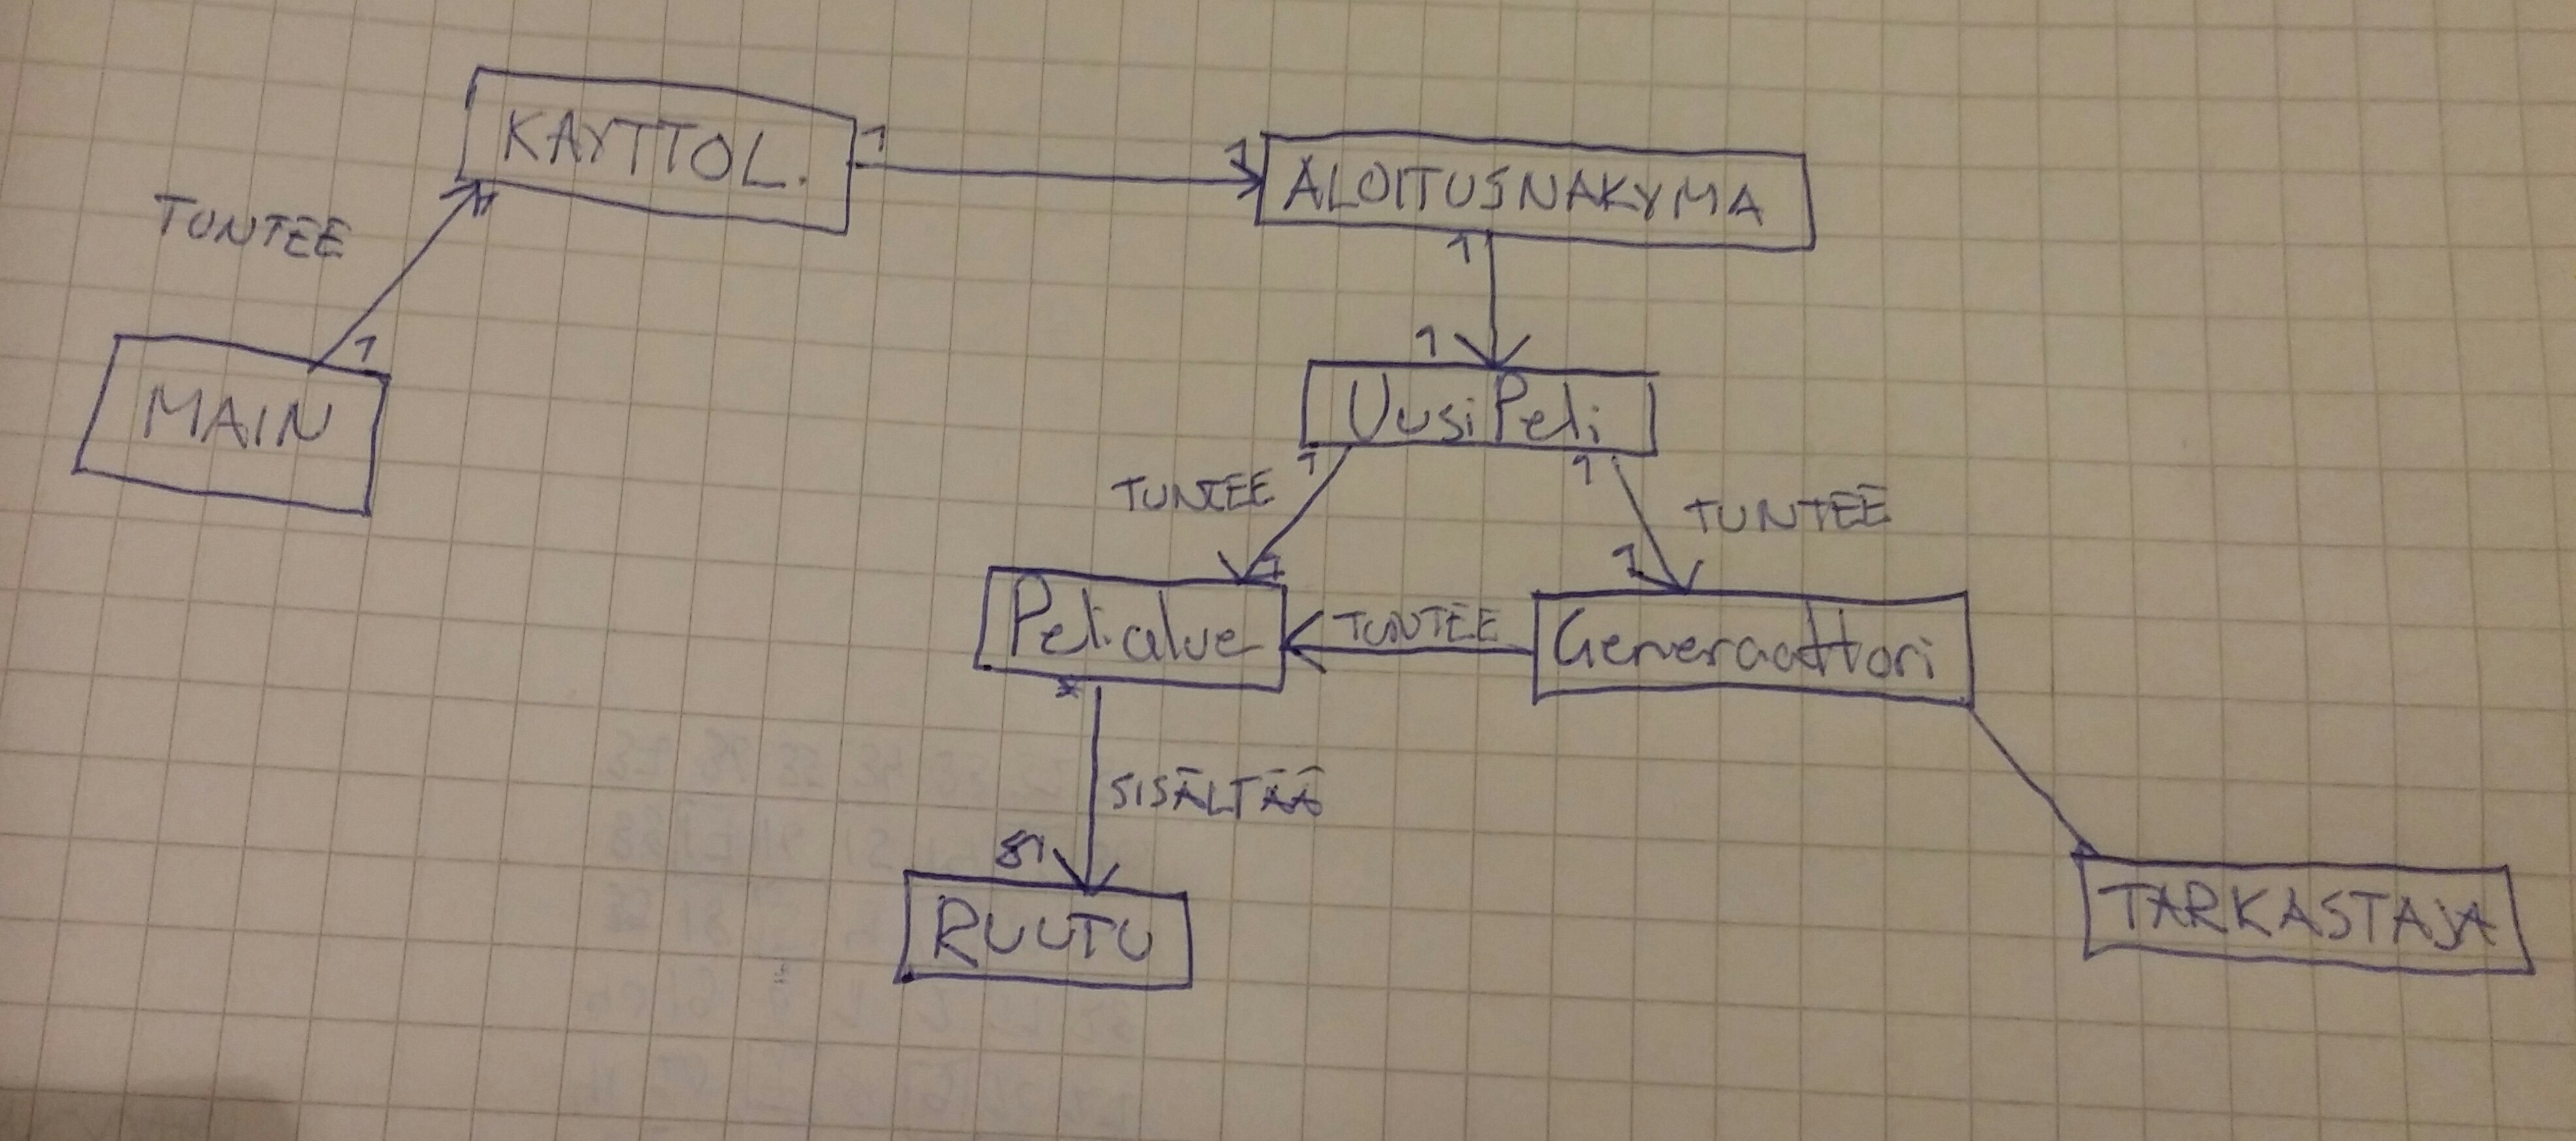 KAYTTOL.
1
1
ALOITUSNAKYMA
TUNTEE
1
MAIN
1
1
UusiPeli
1
1
TUNTEE
TUNTEE
1
1
Pelialue
TUNTEE
Generaattori
*
SISÄLTÄÄ
81
RUUTU
TARKASTAJA